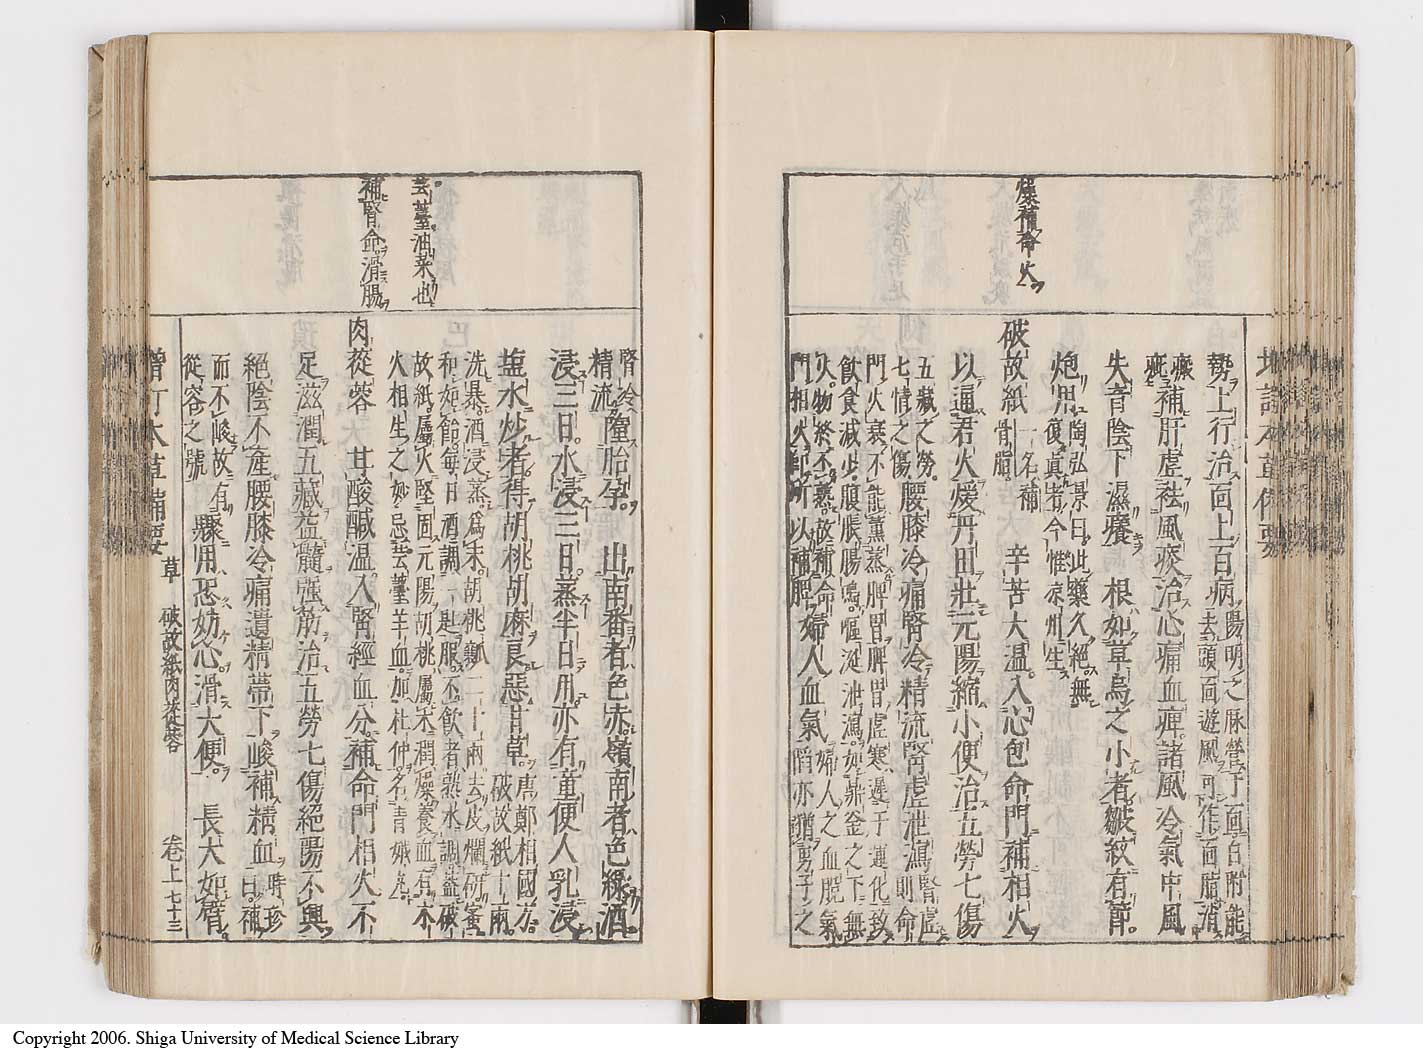 燥補命火
勢上行治面上百病陽明之脉營于面白附能
去頭面遊風可作面脂消
瘢疵補肝虛祛風痰治心痛血痺諸風冷氣中風
失音陰下濕癢 根如草烏之小者皺紋有節
炮用陶弘景曰此藥久絕無
復真者今惟凉州生
破故紙一名補骨脂 辛苦大温入心包命門補相火
以通君火煖丹田壯元陽縮小便治五勞七傷
五藏之勞七情之傷腰膝冷痛腎冷精流腎虛泄瀉腎虛則命
門火衰不能薰蒸脾胃脾胃虛寒遲于運化致
飲食減少腹脹腸鳴嘔涎泄瀉如鼎釜之下無
火物終不熟故補命門相火即所以補脾婦人血氣婦人之血脫氣
陷亦猶男子之
腎冷精流墮胎孕 出南番者色赤嶺南者色緑酒
浸三日水浸三日蒸半日用亦有童便人乳浸
塩水炒者得胡桃胡麻良惡甘草唐鄭相國方破故紙十兩
洗暴酒浸蒸爲末胡桃瓤二十兩去皮爛研蜜
和如飴每日酒調一匙服不飲者熟水調蓋破
故紙屬火堅固元陽胡桃屬木潤燥養血有木
火相生之妙忌芸薹羊血加杜仲名青娥丸
芸薹油菜也
肉蓯蓉 甘酸鹹温入腎經血分補命門相火不
足滋潤五藏益髓強筋治五勞七傷絕陽不興
絕陰不產腰膝冷痛遺精帶下峻補精血時珍曰補
而不峻故有從容之號驟用恐妨心滑大便 長大如臂
補腎命滑腸
增訂本草備要 草 破故紙肉蓯蓉 卷上 七十三